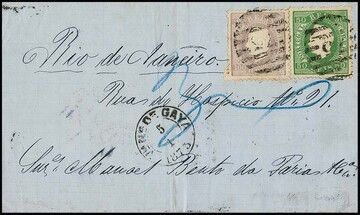 Rio de Janeiro.
Rua do Hospicio Nº 91.
DE GAYA
5
1
1873
Snr. Manoel Bento de Farias & Cia.